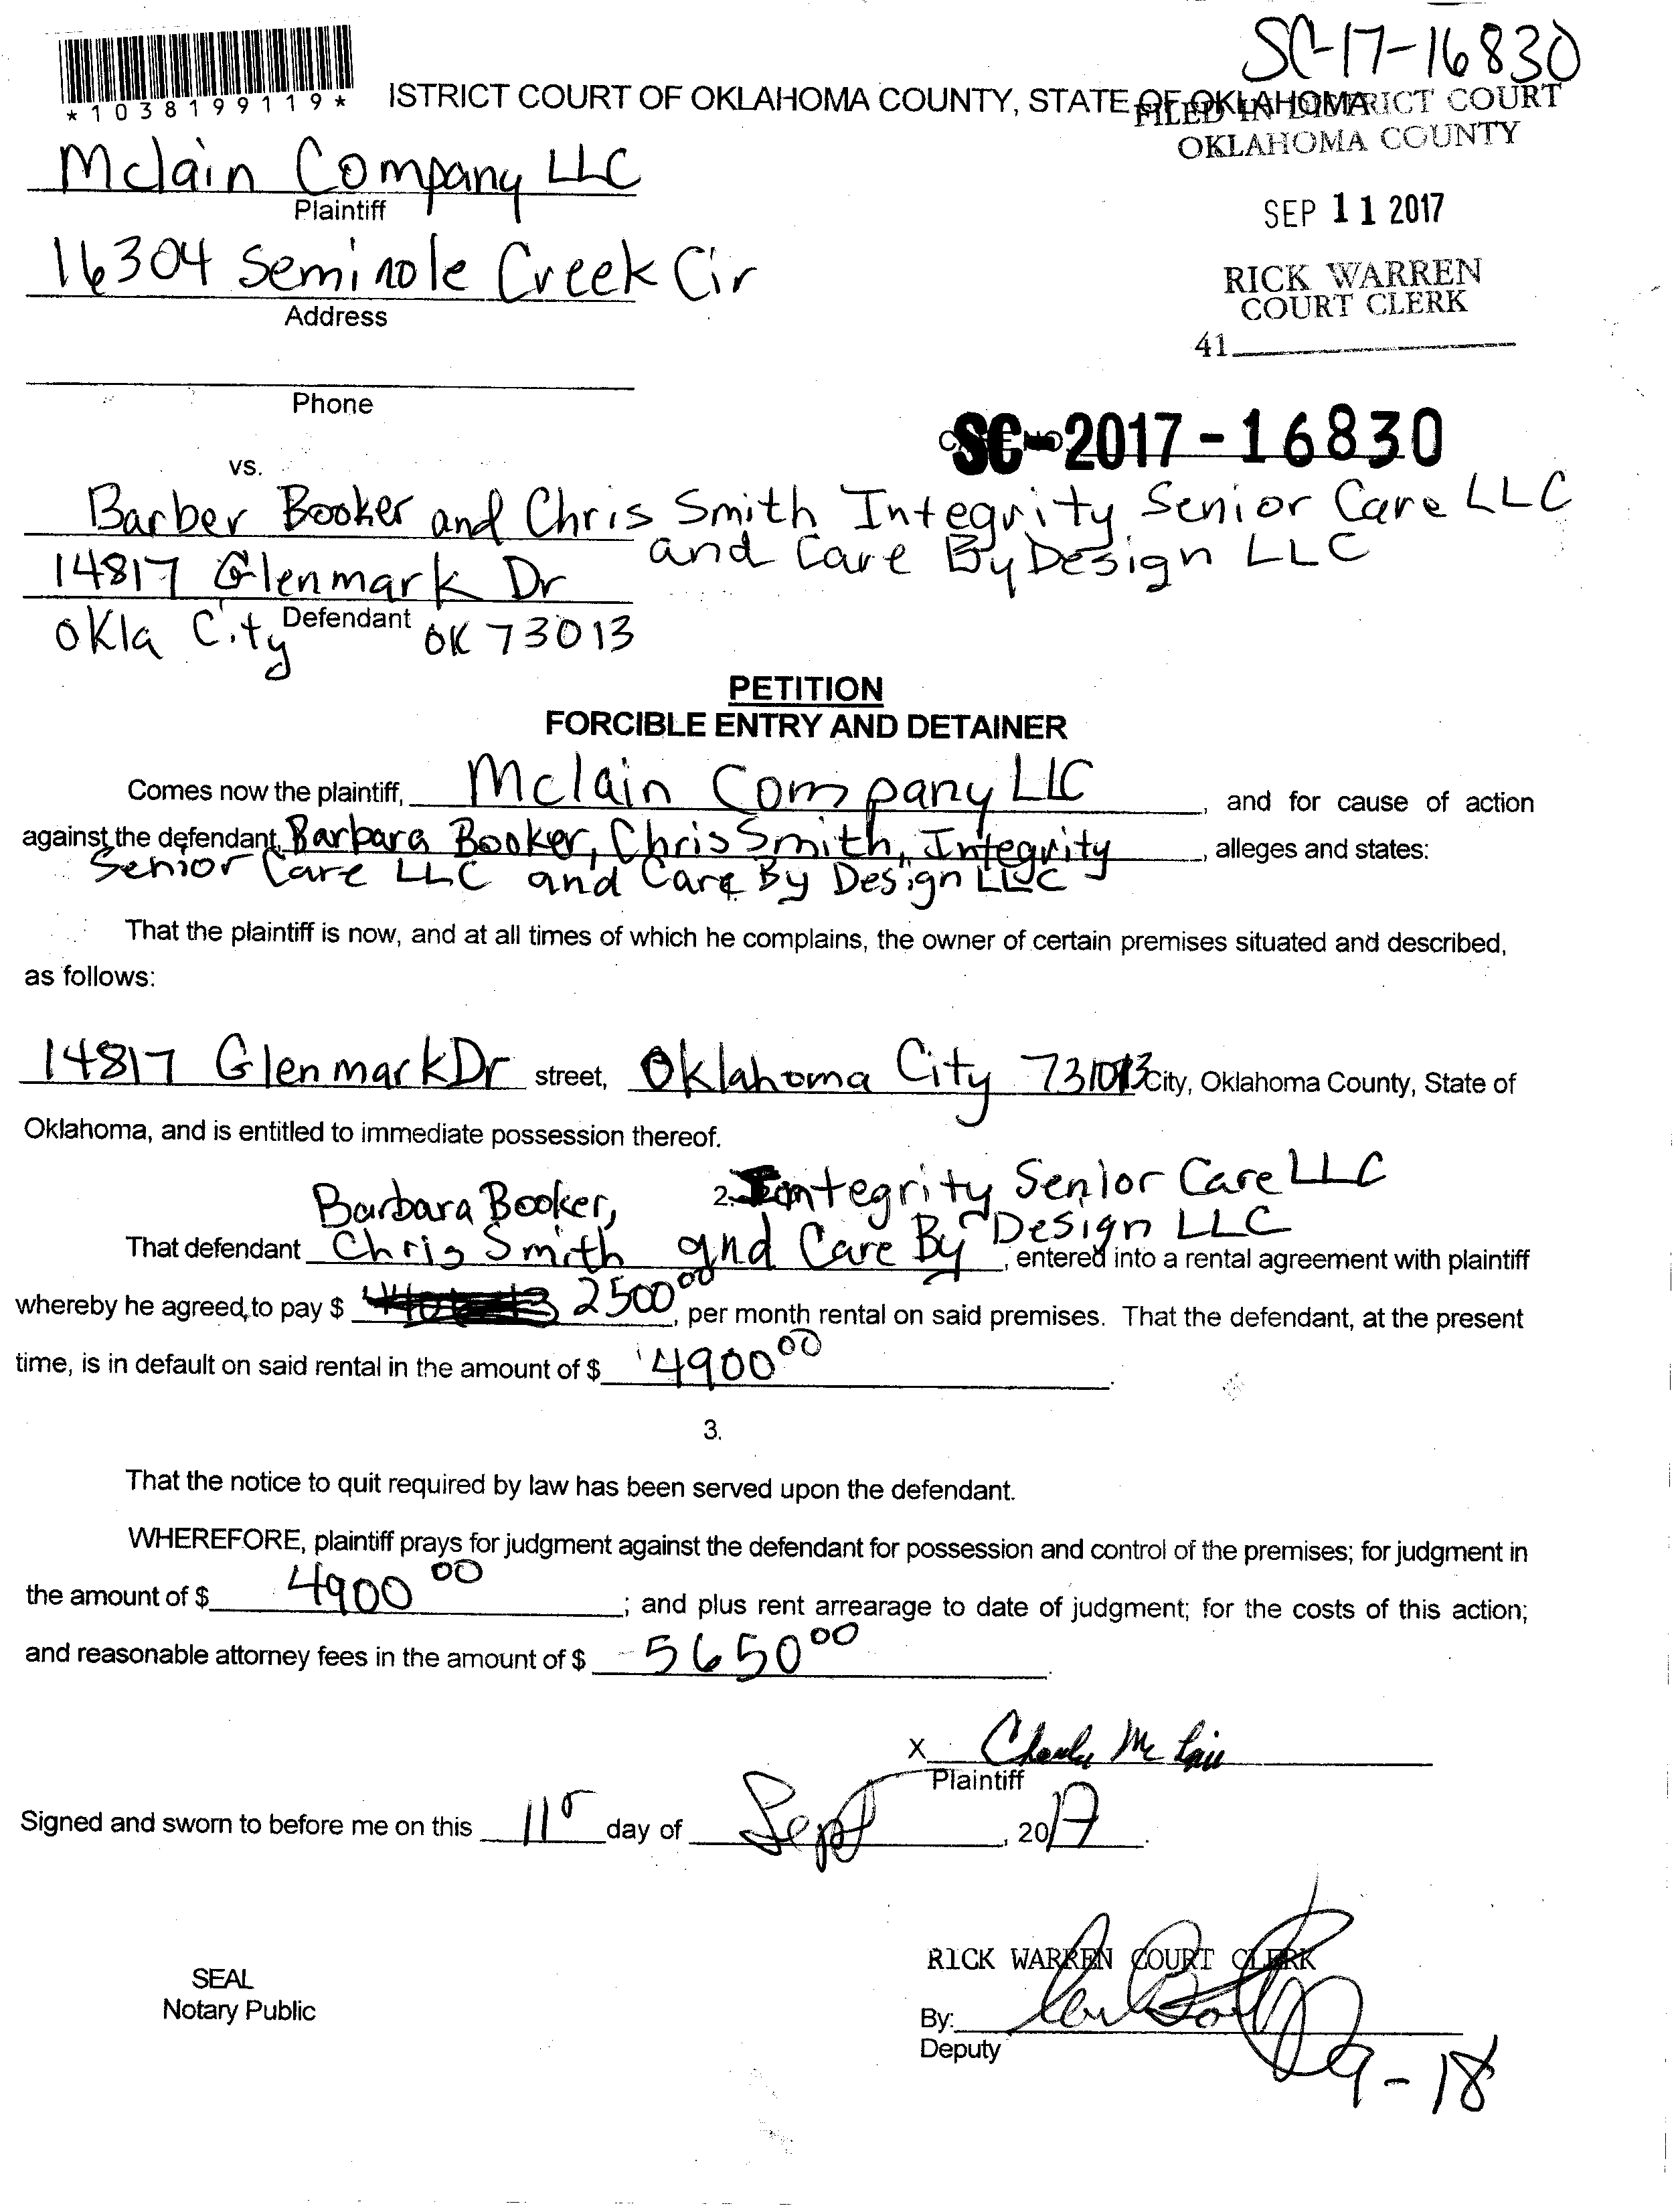 SC-17-16830
*1038199119*
ISTRICT COURT OF OKLAHOMA COUNTY, STATE OF OKLAHOMA
FILED IN DISTRICT COURT
OKLAHOMA COUNTY
Mclain Company LLC
Plaintiff
SEP 11 2017
16304 Seminole Creek Cir
Address
RICK WARREN
COURT CLERK
41
Phone
SC-2017-16830
vs.
Barber Booker and Chris Smith Integrity Senior Care LLC
and Care By Design LLC
14817 Glenmark Dr
Defendant
Okla City OK 73013
PETITION
FORCIBLE ENTRY AND DETAINER
Comes now the plaintiff, Mclain Company LLC, and for cause of action
against the defendant, Barbara Booker, Chris Smith, Integrity, alleges and states:
Senior Care LLC and Care By Design LLC
That the plaintiff is now, and at all times of which he complains, the owner of certain premises situated and described,
as follows:
14817 Glenmark Dr street, Oklahoma City 73013 City, Oklahoma County, State of
Oklahoma, and is entitled to immediate possession thereof.
Barbara Booker, 2. Integrity Senior Care LLC
That defendant Chris Smith and Care By Design LLC, entered into a rental agreement with plaintiff
whereby he agreed to pay $ 2500 00, per month rental on said premises. That the defendant, at the present
time, is in default on said rental in the amount of $ 4900 00.
3.
That the notice to quit required by law has been served upon the defendant.
WHEREFORE, plaintiff prays for judgment against the defendant for possession and control of the premises; for judgment in
the amount of $ 4900 00; and plus rent arrearage to date of judgment; for the costs of this action;
and reasonable attorney fees in the amount of $ 5650 00.
X
Plaintiff
Signed and sworn to before me on this 11 day of Sept, 2017.
RICK WARREN COURT CLERK
SEAL
Notary Public
By:
Deputy
9-18